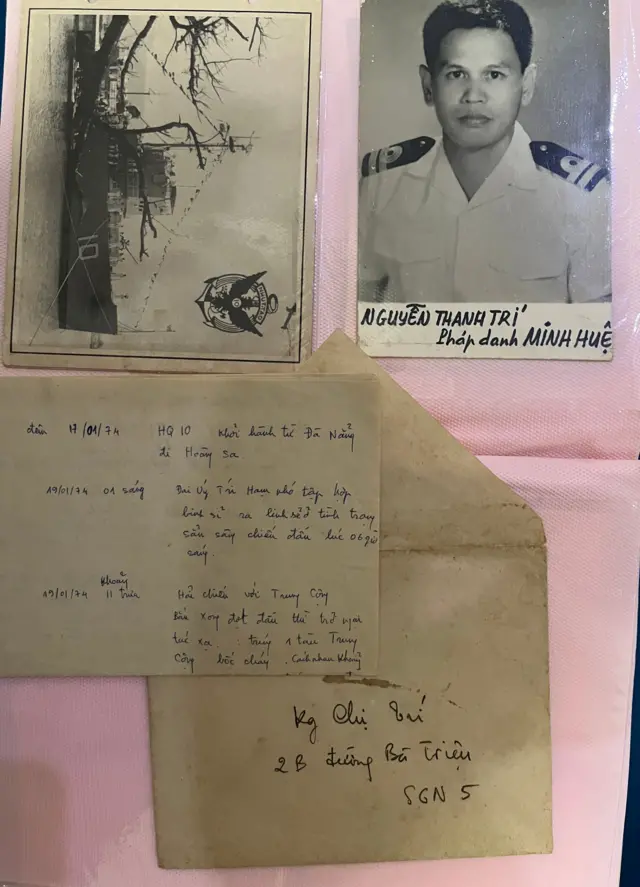 10
NGUYỄN THANH TRÍ
Pháp danh MINH HUỆ
đêm 17/01/74 HQ 10 khởi hành từ Đà Nẵng
đi Hoàng Sa
19/01/74 01 sáng Đại Úy Trí Ham phó tập hợp
binh sĩ ra lịnh sẽ ở tình trạng
sẵn sàng chiến đấu lúc 06 giờ
sáng.
Khoảng
19/01/74 11 trưa Hải chiến với Trung Cộng
Bắn xong đợt đầu thì trở ngại
trúng 1 tàu Trung
Cộng bốc cháy. Cách nhau khoảng
Kg Chị Trí
2B đường Bà Triệu
SGN 5